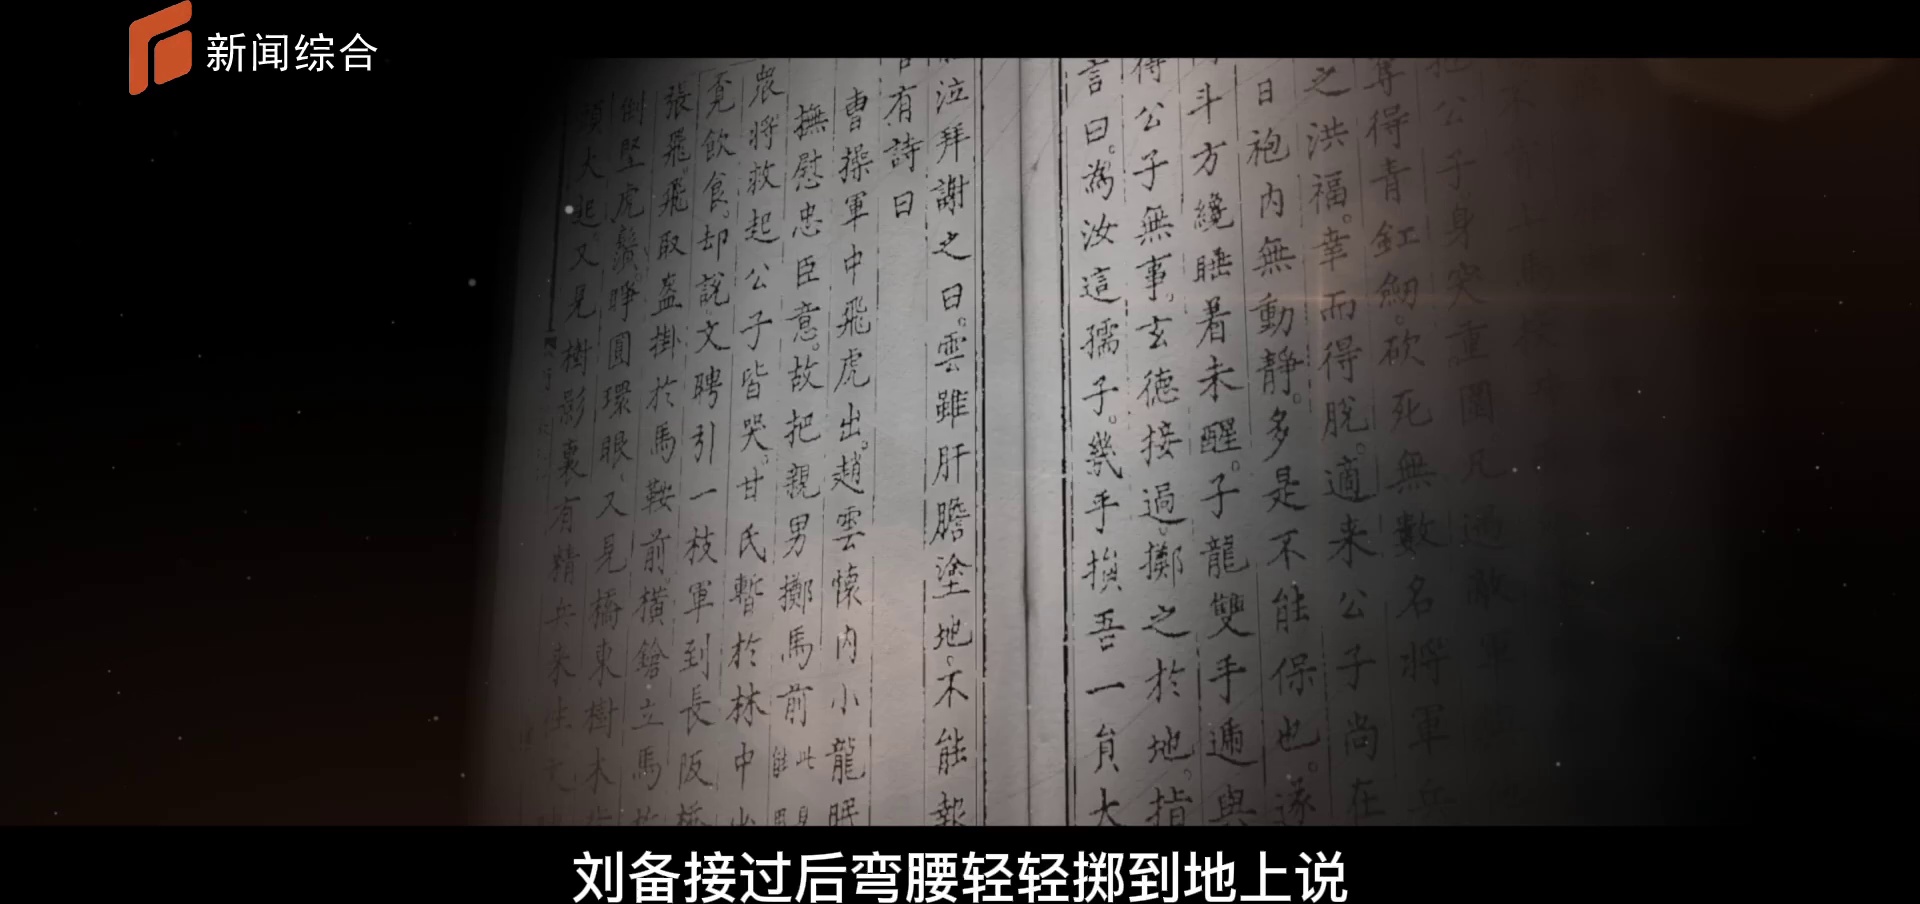 新闻综合
公子身突重圍。凡過敵軍
奪得青釭劒。砍死無數名將軍兵
之洪福。幸而得脫。適来公子尚在
日袍内無動靜。多是不能保也。遂
斗方纔睡着未醒。子龍雙手遞與
得公子無事。玄德接過。擲之於地。指
言曰。為汝這孺子。幾乎損吾一貟大
泣拜謝之曰。雲雖肝膽塗地。不能報
有詩曰
曹操軍中飛虎出。趙雲懷内小龍眠
撫慰忠臣意。故把親男擲馬前
衆將救起公子皆哭。甘氏暫於林中
覓飲食。却說文聘引一枝軍到長阪橋
張飛。飛取盔掛於馬鞍前。橫鎗立馬於
倒竪虎鬚。睜圓環眼。又見橋東樹木
大起。又見樹影裏有精兵来往
刘备接过后弯腰轻轻掷到地上说